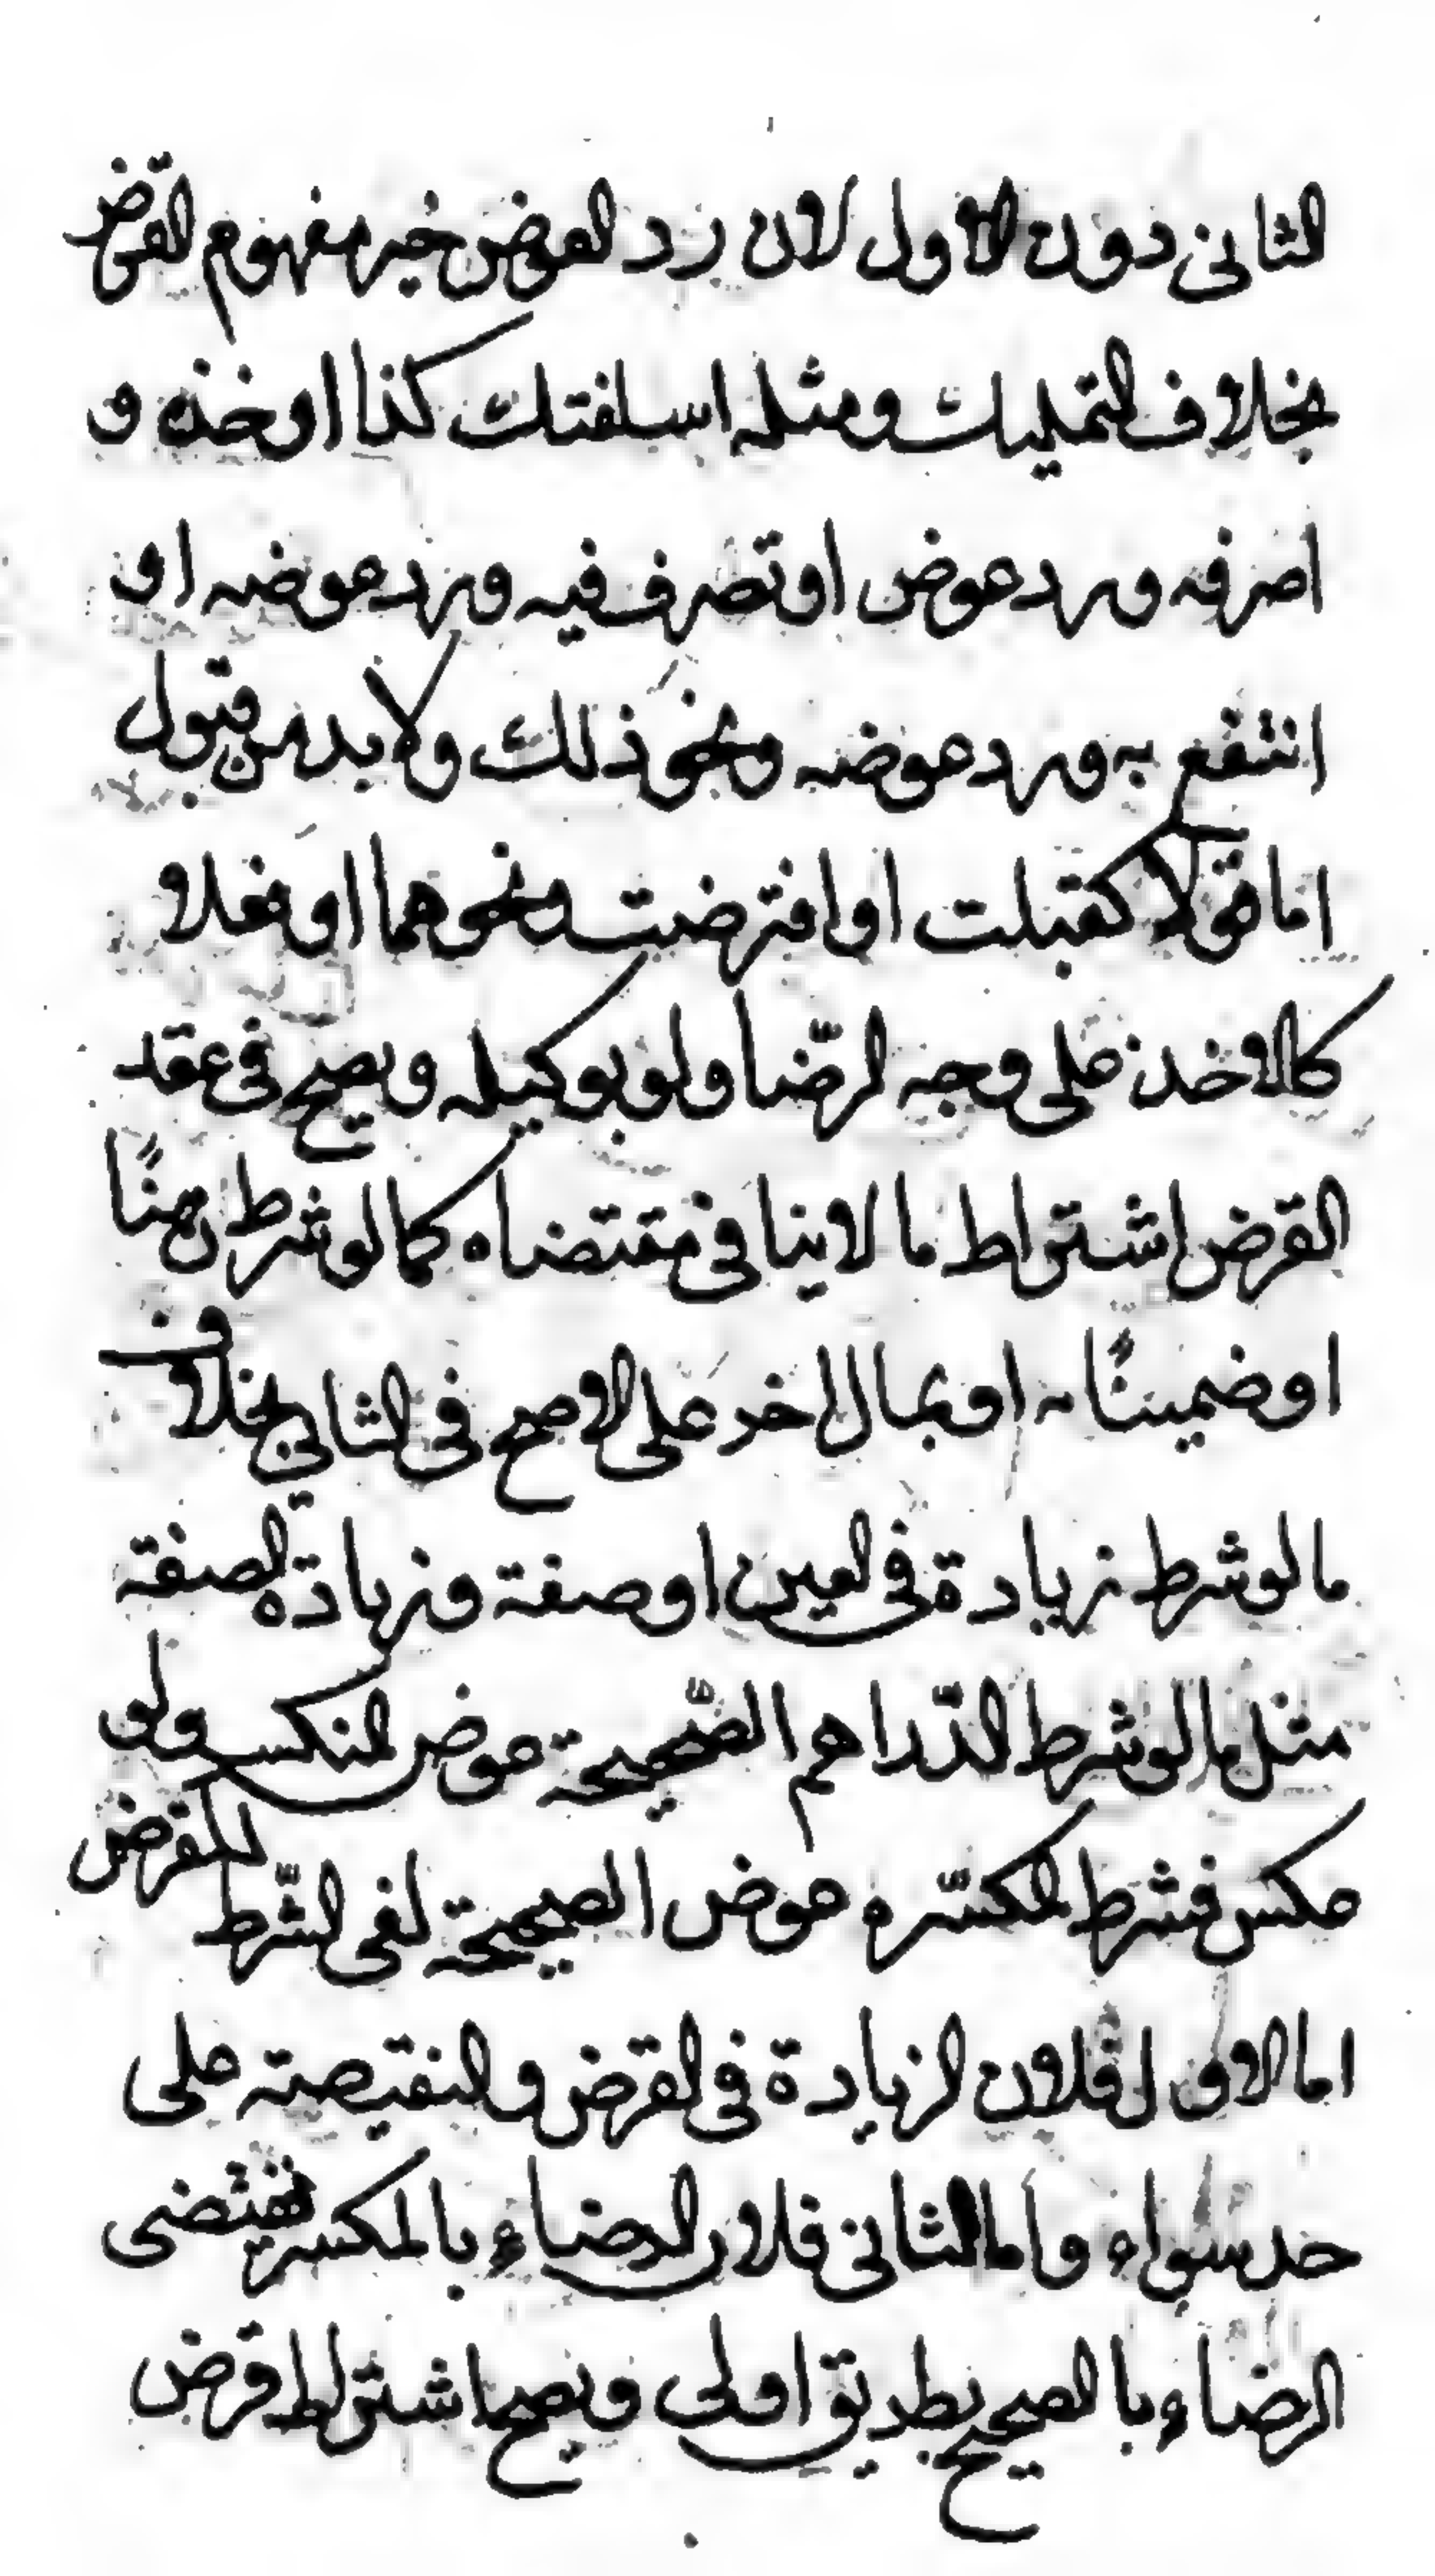 الثانى دون الاول لان رد العوض خير مفهوم القرض
بخلاف التمليك ومثله اسلفتك كذا او خذه و
اصرفه ورد عوض او تصرف فيه ورد عوضه او
انتفع به ورد عوضه ونحو ذلك ولا بد من قبول
اما قولا كقبلت او اقترضت ونحوهما او فعلا
كالاخذ على وجه الرّضا ولو بوكيله ويصح فى عقد
القرض اشتراط ما لا ينافى مقتضاه كما لو شرط رهنًا
او ضمينًا او بمال اخر على الاصح فى الثانى بخلاف
ما لو شرط زيادة فى العين او صفة وزيادة الصفة
مثل ما لو شرط الدّراهم الصّحيحة عوض المنكسر ولو
عكس فشرط المكسّره عوض الصحيحة لغى الشّرط للمقرض
اما الاول فلان الزيادة فى القرض والنقيصة على
حد سواء واما الثانى فلان الرضاء بالمكسر يقتضى
الرضاء بالصحيح بطريق اولى ويصح اشتراط قرض